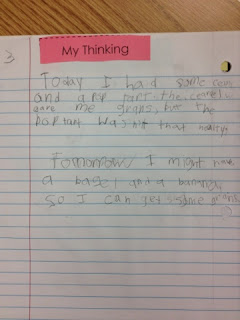 3
My Thinking
Today I had some corn
and a pop tart. the cereal
gave me grans, but the
pop tart was not that
Tomorrow I might have
a bagel and a banana,
so I can get some